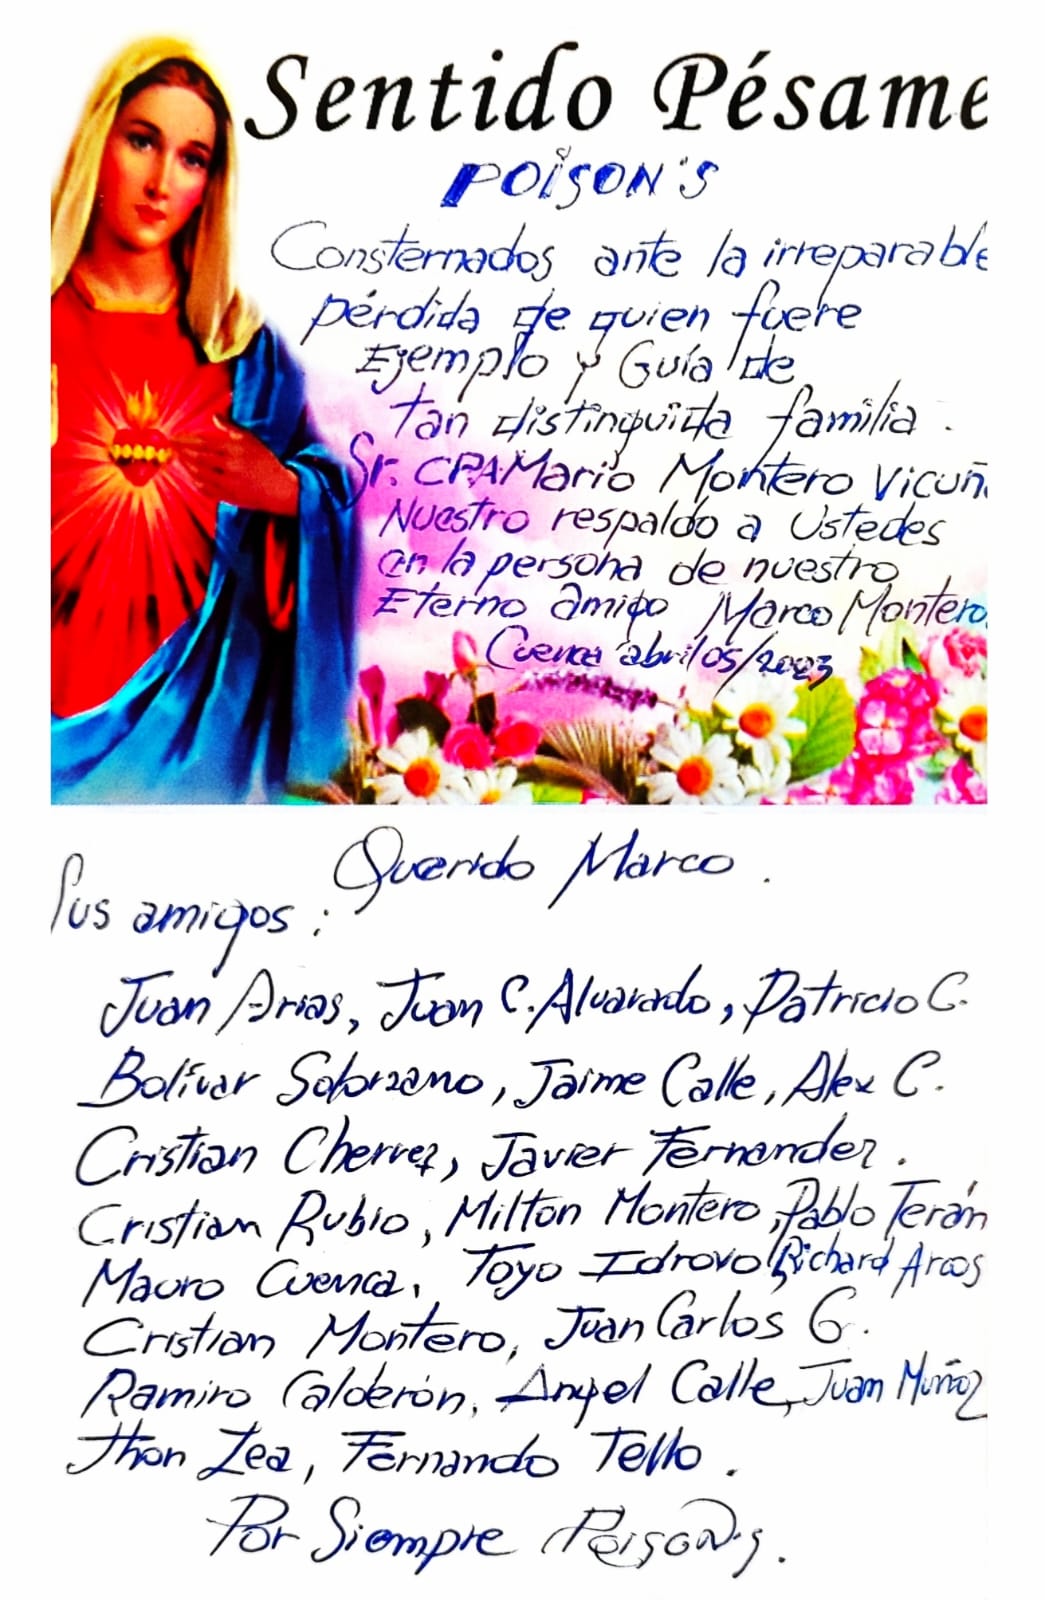 Sentido Pésame
POISON'S
Consternados ante la irreparable
pérdida de quien fuere
Ejemplo y Guía de
tan distinguida familia.
Sr. CPA Mario Montero Vicuñ
Nuestro respaldo a Ustedes
en la persona de nuestro
Eterno amigo Marco Montero
Cuenca abril/05/2023
Querido Marco.
Sus amigos:
Juan Arias, Juan C. Alvarado, Patricio C.
Bolívar Solorzano, Jaime Calle, Alex C.
Cristian Cherrez, Javier Fernandez.
Cristian Rubio, Milton Montero, Pablo Terán
Mauro Cuenca, Toyo Idrovo, Richard Arcos
Cristian Montero, Juan Carlos G.
Ramiro Calderón, Angel Calle, Juan Muñoz
Jhon Zea, Fernando Tello.
Por Siempre Poison's.